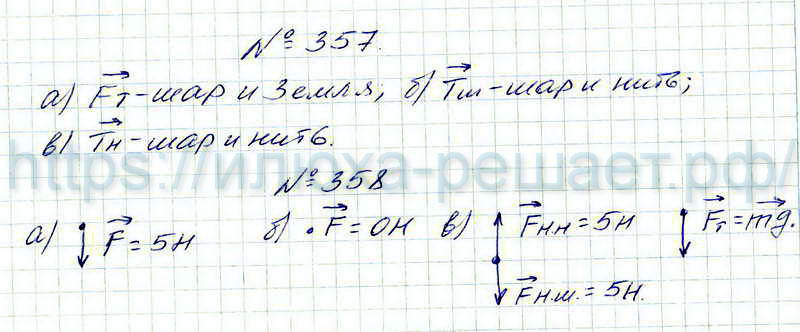 № 357.
а) F⃗т - шар и Земля, б) T⃗ш - шар и нить;
в) T⃗н - шар и нить.
https://илюха-решает.рф/
№ 358
а) F⃗ = 5Н б) F⃗ = 0Н в) F⃗нн = 5Н F⃗т = m⃗g.
F⃗н.ш. = 5Н.